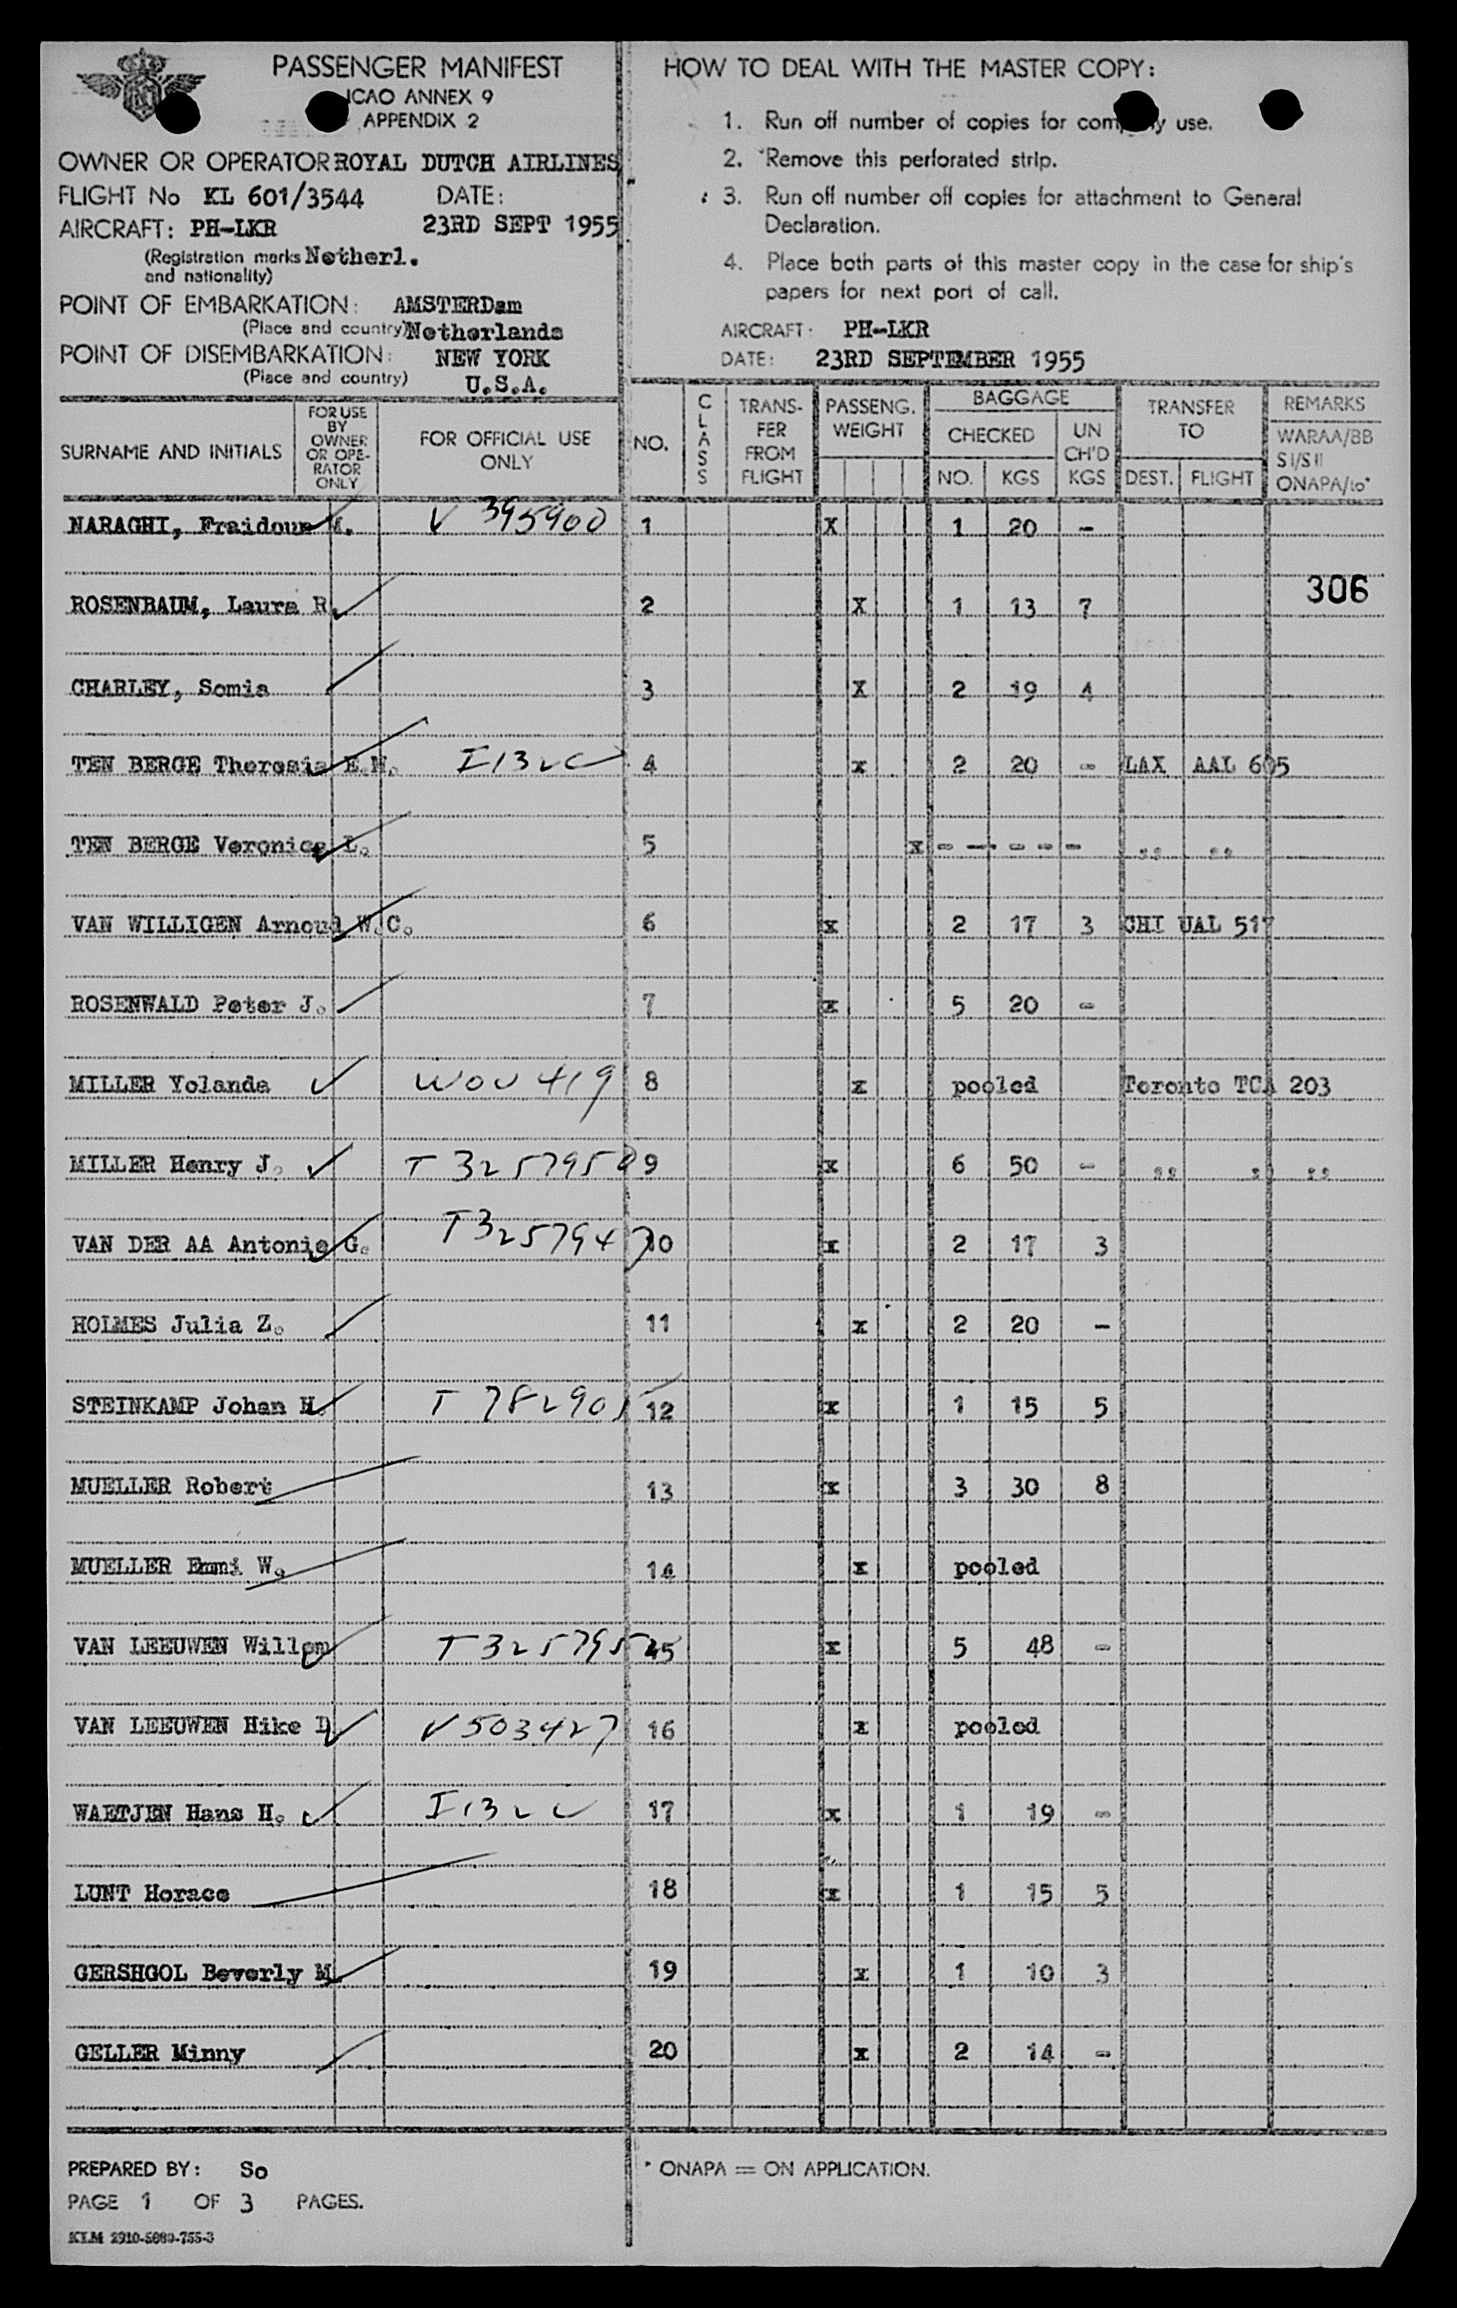 PASSENGER MANIFEST
ICAO ANNEX 9
APPENDIX 2
OWNER OR OPERATOR ROYAL DUTCH AIRLINES
FLIGHT No KL 601/3544 DATE:
AIRCRAFT: PH-LKR 23RD SEPT 1955
(Registration marks Netherl.
and nationality)
POINT OF EMBARKATION: AMSTERDam
(Place and country) Netherlands
POINT OF DISEMBARKATION: NEW YORK
(Place and country) U.S.A.
HOW TO DEAL WITH THE MASTER COPY:
1. Run off number of copies for company use.
2. Remove this perforated strip.
3. Run off number off copies for attachment to General
Declaration.
4. Place both parts of this master copy in the case for ship's
papers for next port of call.
AIRCRAFT: PH-LKR
DATE: 23RD SEPTEMBER 1955
SURNAME AND INITIALS
FOR USE
BY
OWNER
OR OPE-
RATOR
ONLY
FOR OFFICIAL USE
ONLY
NO.
CLASS
TRANS-
FER
FROM
FLIGHT
PASSENG.
WEIGHT
BAGGAGE
CHECKED
NO. KGS
UN
CH'D
KGS
TRANSFER
TO
DEST. FLIGHT
REMARKS
WARAA/BB
SI/SII
ONAPA/to*
NARAGHI, Fraidoun M. V 395900 1 X 1 20 -
306
ROSENBAUM, Laura R. 2 X 1 13 7
CHARLEY, Somia 3 X 2 19 4
TEN BERGE Theresia E.M. I132C 4 x 2 20 - LAX AAL 605
TEN BERGE Veronica L. 5 x - - - - - ,, ,,
VAN WILLIGEN Arnoud W.C. 6 x 2 17 3 CHI UAL 517
ROSENWALD Peter J. 7 x 5 20 -
MILLER Yolanda 8 x pooled Toronto TCA 203
MILLER Henry J. 9 x 6 50 - ,, , ,,
VAN DER AA Antonie G. T3257947 10 x 2 17 3
HOLMES Julia Z. 11 x 2 20 -
STEINKAMP Johan H. 12 x 1 15 5
MUELLER Robert 13 x 3 30 8
MUELLER Emmi W. 14 x pooled
VAN LEEUWEN Willem 15 x 5 48 -
VAN LEEUWEN Hike D. V503427 16 x pooled
WAETJEN Hans H. 17 x 1 19 -
LUNT Horace 18 x 1 15 5
GERSHGOL Beverly M. 19 x 1 10 3
GELLER Minny 20 x 2 14 -
PREPARED BY: So
* ONAPA = ON APPLICATION.
PAGE 1 OF 3 PAGES.